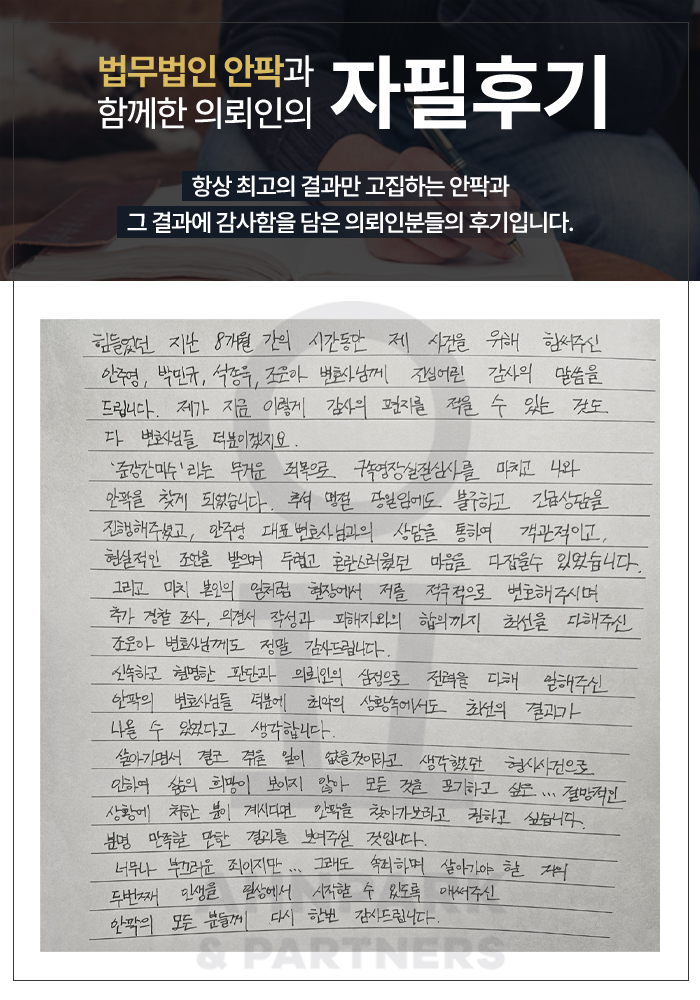 법무법인 안팍과
함께한 의뢰인의
자필후기
항상 최고의 결과만 고집하는 안팍과
그 결과에 감사함을 담은 의뢰인분들의 후기입니다.
힘들었던 지난 8개월 간의 시간동안 제 사건을 위해 힘써주신
안주영, 박민규, 석종욱, 조운아 변호사님께 진심어린 감사의 말씀을
드립니다. 제가 지금 이렇게 감사의 편지를 적을 수 있는 것도
다 변호사님들 덕분이겠지요.
'준강간미수'라는 무거운 죄목으로 구속영장실질심사를 마치고 나와
안팍을 찾게 되었습니다. 추석 명절 당일임에도 불구하고 긴급상담을
진행해주셨고, 안주영 대표변호사님과의 상담을 통하여 객관적이고,
현실적인 조언을 받으며 두렵고 혼란스러웠던 마음을 다잡을수 있었습니다.
그리고 마치 본인의 일처럼 현장에서 저를 적극적으로 변호해주시며
추가 경찰 조사, 의견서 작성과 피해자와의 합의까지 최선을 다해주신
조운아 변호사님께도 정말 감사드립니다.
신속하고 현명한 판단과 의뢰인의 심정으로 전력을 다해 임해주신
안팍의 변호사님들 덕분에 최악의 상황속에서도 최선의 결과가
나올 수 있었다고 생각합니다.
살아가면서 결코 겪을 일이 없을것이라고 생각했던 형사사건으로
인하여 삶의 희망이 보이지 않아 모든 것을 포기하고 싶은... 절망적인
상황에 처한 분이 계시다면 안팍을 찾아가보라고 권하고 싶습니다.
분명 만족할 만한 결과를 보여주실 것입니다.
너무나 부끄러운 죄이지만... 그래도 속죄하며 살아가야 할 저의
두번째 인생을 일상에서 시작할 수 있도록 애써주신
안팍의 모든 분들께 다시 한번 감사드립니다.
& PARTNERS